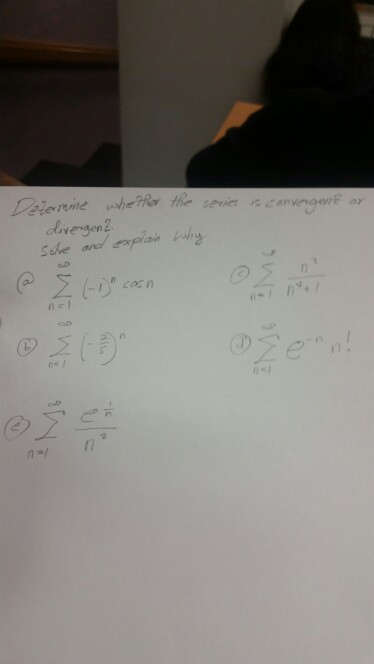 Determine whether the series is convergent or
divergent.
Solve and explain why
(a) ∞ Σ n=1 (-1)^n cos n
(c) ∞ Σ n=1 n^3/(n^4+1)
(b) ∞ Σ n=1 (-2/5)^n
(d) ∞ Σ n=1 e^-n n!
(e) ∞ Σ n=1 e^(1/n)/n^2